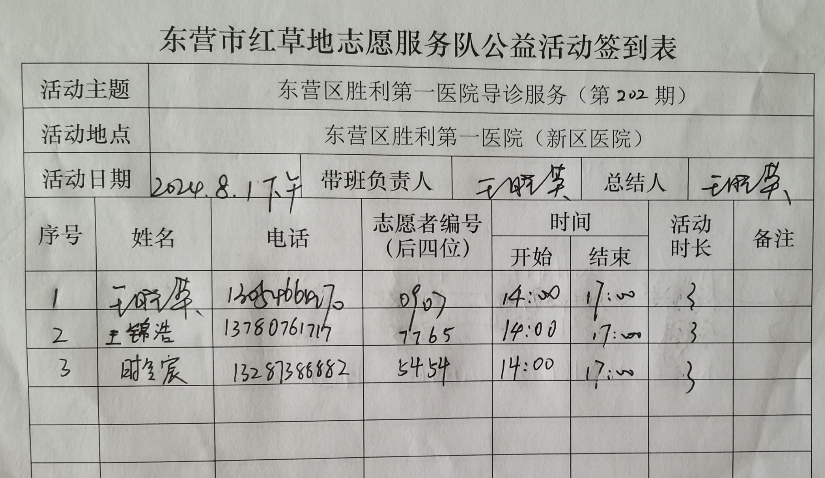 东营市红草地志愿服务队公益活动签到表
活动主题 东营区胜利第一医院导诊服务（第202期）
活动地点 东营区胜利第一医院（新区医院）
活动日期 2024.8.1下午 带班负责人 王晓英 总结人 王晓英
序号 姓名 电话 志愿者编号（后四位） 时间 开始 结束 活动时长 备注
1 王晓英 0907 14:00 17:00 3
2 王锦浩 13780761717 7765 14:00 17:00 3
3 时 宸 13287388882 5454 14:00 17:00 3